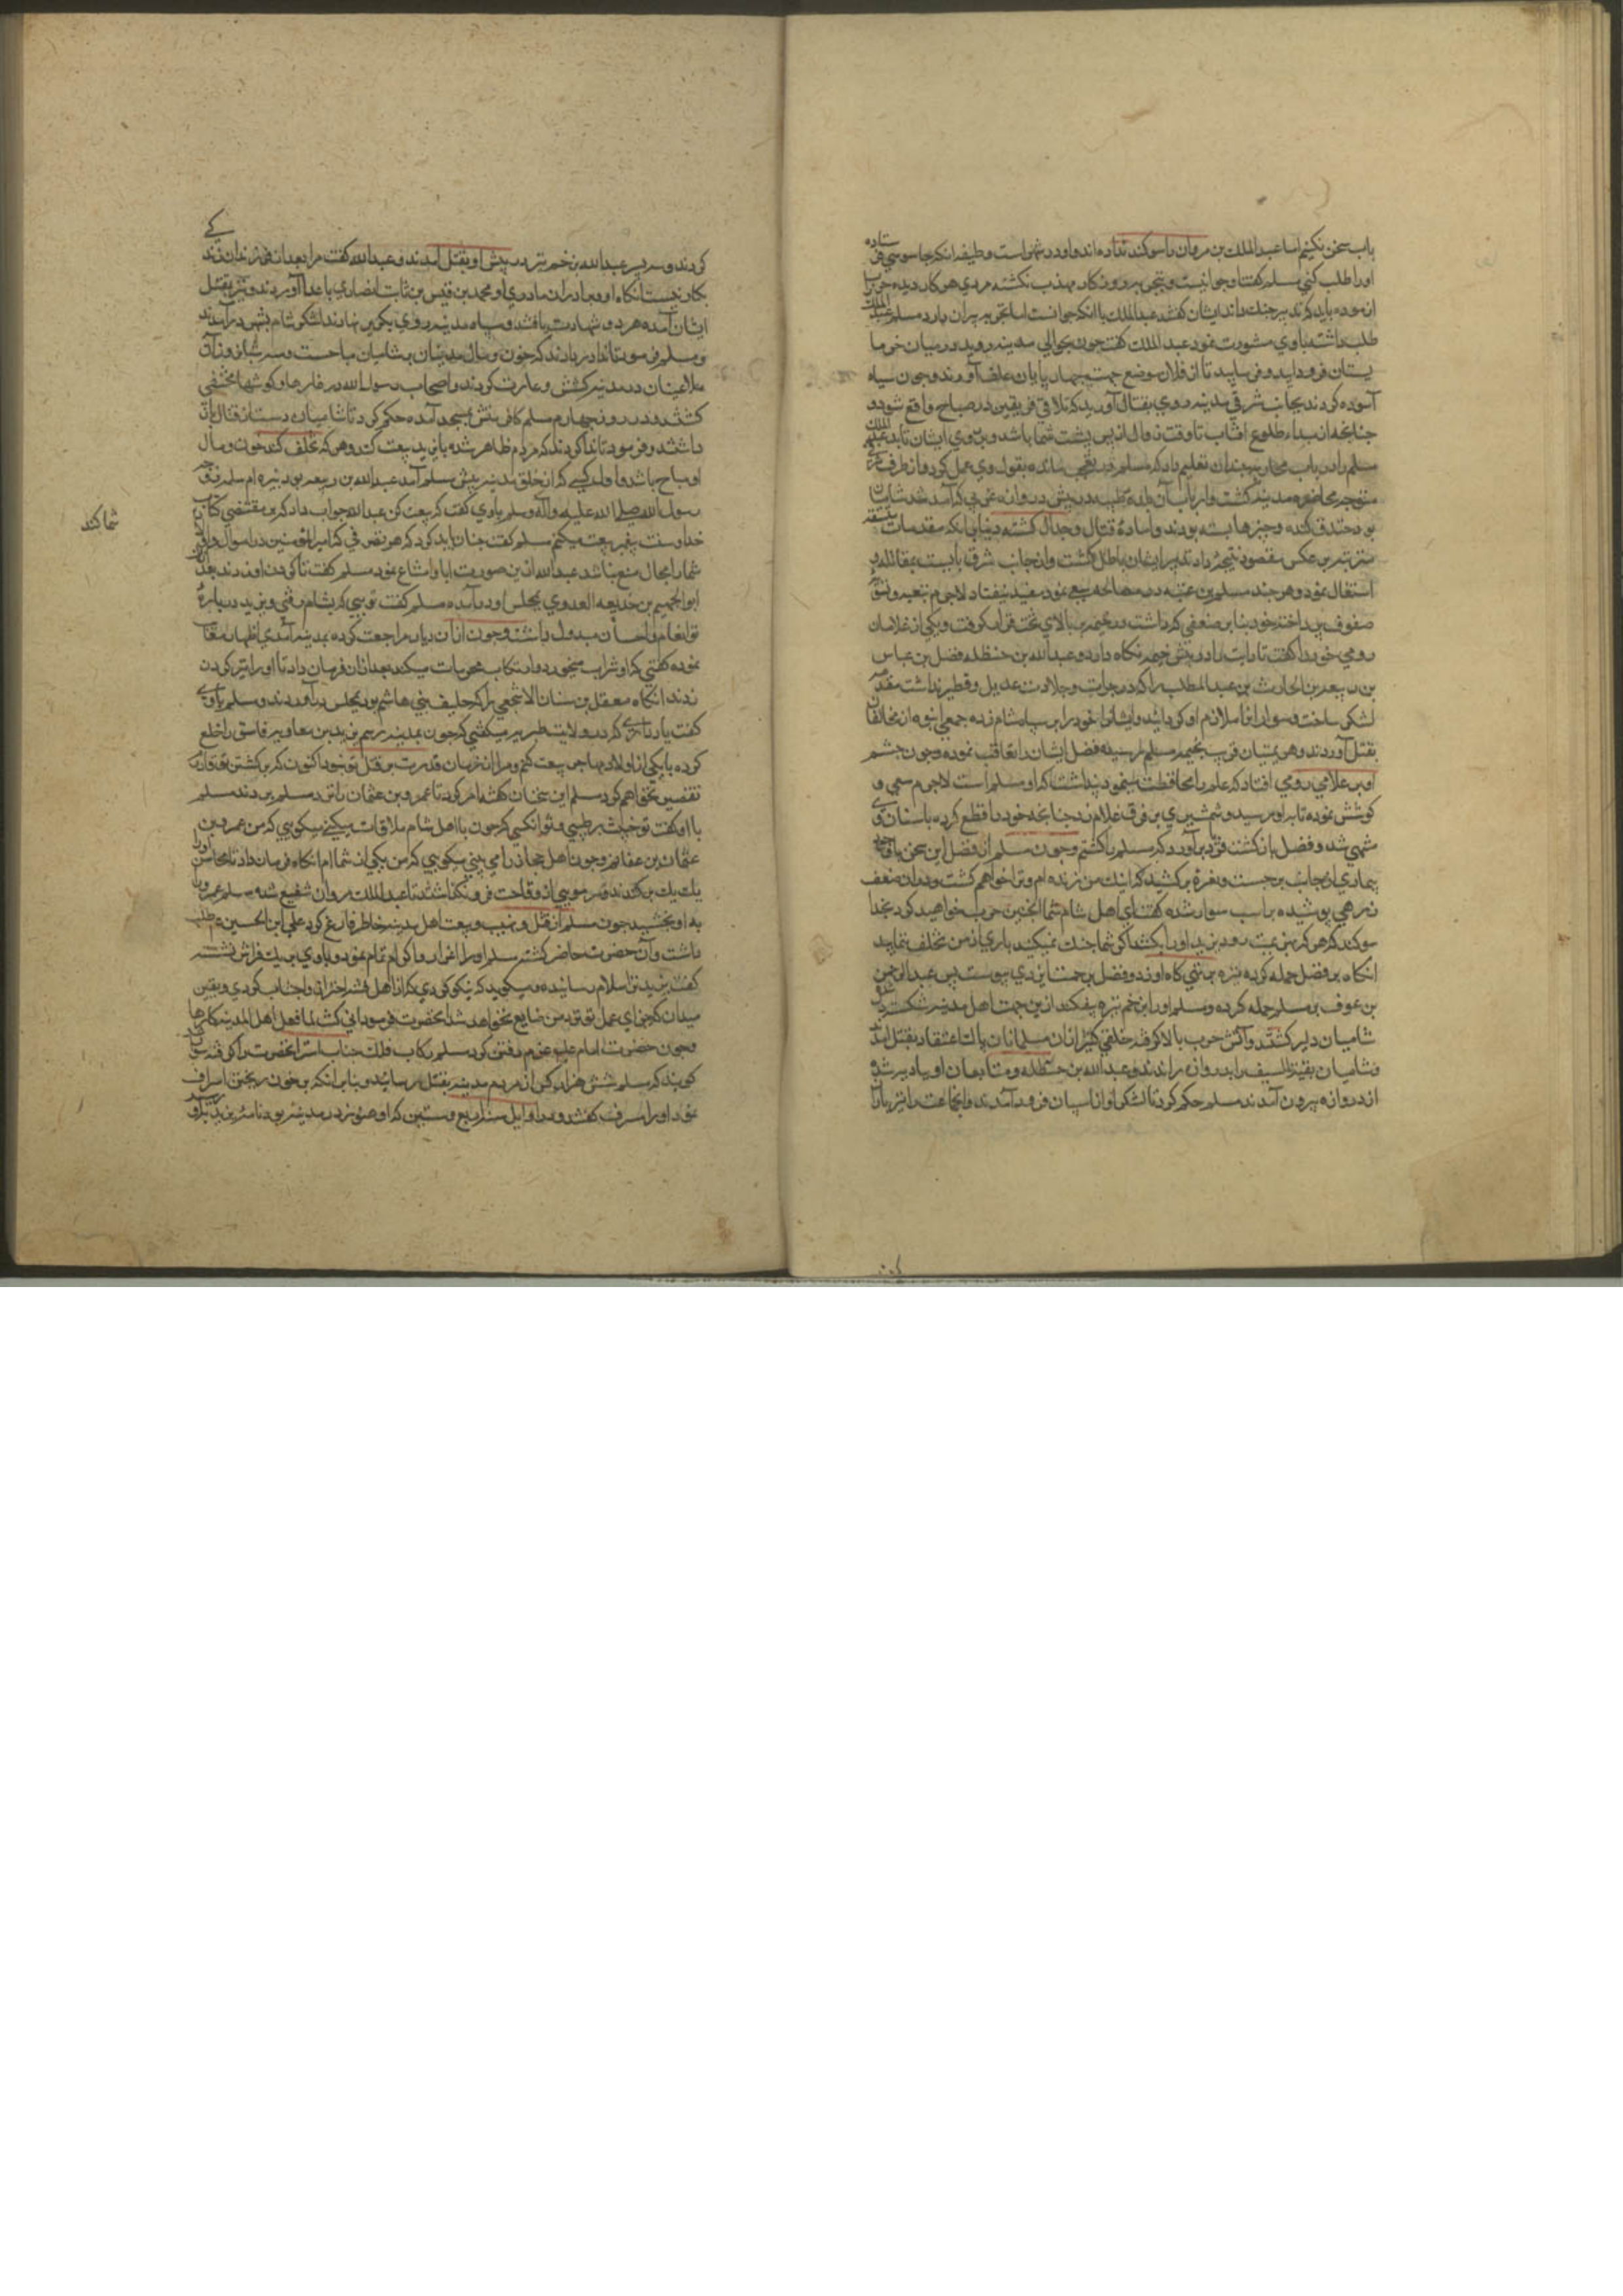 باب سخن نکنیم اما عبد الملك بن مروان را سوکند نداده اند و او در دشمنی است وظیفه انکه جاسوسی فرستاده
او را طلب کنی مسلم کفت او جوانیست و بتجربه روزکار مهذب نکشته مردی هر کار دیده حرب
ازموده باید که تدبیر جنك داند ایشان کفتند عبد الملك با انکه جوانست اما تجربه پیران دارد مسلم عبد الملك
طلب داشته با وی مشورت نمود عبد الملك کفت چون بحوالی مدینه روید در میان خرما
یستان فرود اید و فرمایید تا از فلان موضع جهت چهار پایان علف آورند و چون سپاه
آسوده کردند بجانب شرقی مدینه روی بقتال آورید که تلاقی فریقین در صباح واقع شود و
چنانچه از مبداء طلوع افتاب تا وقت زوال از پس پشت شما باشد و بر روی ایشان تابد عبد الملك
مسلم را در باب محاربه چندان تعلیم داد که مسلم متعجب مانده بقول وی عمل کرد و از طرف شرقی
متوجه محاصره مدینه کشت
بود خندق کنده و چیزها بسته بودند و آماده قتال و جدال کشته
استقبال نمود و هر چند مسلم بن عقبه در مصالحه سعی نمود مفید نیفتاد لاجرم بتعبیه و تسویه
صفوف پرداخته خود بنا بر ضعفی که داشت در خیمه بر بالای تخت قرار کرفت و یکی از غلامان
رومی خود را کفت تا رایت را در پیش خیمه نکاه دارد و عبد الله بن حنظله فضل بن عباس
بن ربیعه بن الحارث بن عبد المطلب را که در جرات و جلادت عدیل و نظیر نداشت مقدمه
لشکر ساخت و سواران را ملازم او کردانید و ایشان خود را بر سپاه شام زده جمعی انبوه از مخالفان
بقتل آوردند و هزیمتیان قریب بخیمه مسلم رسیده فضل ایشان را تعاقب نموده و چون چشم
او بر غلامی رومی افتاد که علم را محافظت مینمود پنداشت که او مسلم است لاجرم سعی و
کوشش نموده تا به او رسید و شمشیری بر فرق غلام زد چنانچه خود را قطع کرده باسنان وی
منتهی شد و فضل بازکشت فریاد برآورد که مسلم را کشتم و چون مسلم از فضل این سخن
بیماری از جای بر جست و نعره برکشید که اینك من زنده ام و ترا خواهم کشت و در ان ضعف
زرهی پوشیده بر اسب سوار شده کفت ای اهل شام شما اینچنین حرب خواهید کرد بخدا
سوکند که هر که بهزیمت رود یزید او را بکشد اکر شما جنك نمیکنید باری از من تخلف ننمایید
انکاه بر فضل حمله کرده نیزه بر تهی کاه او زد و فضل برحمت ایزدی پیوست پس عبد الرحمن
بن عوف بر مسلم حمله کرده و مسلم او را بزخم نیزه بیفکند ازین جهت اهل مدینه شکسته دل
شامیان دلیر کشتند و آتش حرب بالا کرفته خلقی کثیر از ان مسلمانان پاك اعتقاد بقتل آمدند
و شامیان بقیة السیف را بدروازه راندند و عبد الله بن حنظله و متابعان او پیاده شده
از دروازه بیرون آمدند مسلم حکم کرد تا لشکر او از اسپان فرود آمدند و انجماعت را تیر باران
کردند و سه پسر عبد الله بزخم تیر در پیش او بقتل آمدند و عبد الله کفت مرا بعد از فرزندان زندکی
بکار نیست انکاه او و برادران مادری او محمد بن قیس بن ثابت انصاری با اعدا آورده
ایشان آمده هر دو شهادت یافتند و سپاه مدینه روی بکریز نهادند لشکر شام بشهر درآمدند
و مسلم فرمود تا ندا در دادند که خون و مال مدنیان بشامیان مباحست و سه شبانه روز آن
ملاعینان در مدینه کشش و غارت کردند و اصحاب رسول الله در غارها و کوشها مختفی
کشتند و در روز چهارم مسلم کافر منش بمسجد آمده حکم کرد تا شامیان دست از قتال باز
داشتند و فرمود تا ندا کردند که مردم ظاهر شده با یزید بیعت کنند و هر که تخلف کند خون و مال
او مباح باشد و اول کسی که از خلق مدینه پیش مسلم آمد عبد الله بن ربیعه بود نبیره ام سلمه زوجه
رسول الله صلی الله علیه و آله و سلم با وی کفت که بیعت کن عبد الله جواب داد که بر مقتضی کتاب
خدا و سنت پیغمبر بیعت میکنم مسلم کفت چنان باید کرد که هر تصرفی که امیر المؤمنین در اموال و اولاد
شما کند
شما را مجال منع نباشد عبد الله از بن صورت ابا و امتناع نمود مسلم کفت تا کردن او زدند بعد از ان
ابو الجهم بن حذیفه العدوی بمجلس او درآمده مسلم کفت تویی که بشام رفتی و یزید درباره
تو انعام و احسان مبذول داشت و چون از ان دیار مراجعت کرده بمدینه آمدی
نموده کفتی که او شراب میخورد و ارتکاب محرمات میکند بعد از ان فرمان داد تا او را نیز کردن
زدند انکاه معقل بن سنان الاشجعی را که حلیف بنی هاشم بود بمجلس درآوردند و مسلم با وی
کفت یاد داری که در ولایت طبریه میکفتی که چون بمدینه رسم یزید بن معاویه فاسق را خلع
کرده با یکی از اولاد مهاجر بیعت کنم و مرا انزمان قدرت بر قتل تو نبود اکنون که بر کشتن تو قادرم
تقصیر نخواهم کرد مسلم این سخنان کفته امر کرد تا عمرو بن عثمان را نزد مسلم بردند مسلم
با او کفت تو خبیث بر طیبی و تو انکسی که چون با اهل شام ملاقات میکنی میکویی که من عمرو بن
عثمان بن عفانم و چون اهل حجاز را می بینی میکویی که من یکی از شما ام انکاه فرمان داد تا محاسن او را
یك یك برکندند و سر مویی از وقاحت فرو نکذاشتند تا عبد الملك مروان شفیع شده مسلم عمرو را
به او بخشید چون مسلم از قتل و نهب و بیعت اهل مدینه خاطر فارغ کرد علی ابن الحسین ع م طلب
داشت و آن حضرت حاضر کشته مسلم او را اعزاز و اکرام تمام نمود و با وی بر یك فراش نشسته
کفت یزید ترا سلام رسانیده و میکوید که نیکو کردی که از اهل فتنه احتراز و اجتناب کردی و یقین
میدان که جزای عمل تو نزد من ضایع نخواهد شد انحضرت فرمود
و چون حضرت امام ع م عزم رفتن کرد مسلم رکاب فلك جناب استر انحضرت را کرفته سوار
کویند که مسلم شش هزار کس از مردم مدینه بقتل رسانید و بنا بر انکه بر خون ریختن اسراف
نمود او را مسرف کفتند و در اوایل سنه اربع و ستین که او هنوز در مدینه بود نامه یزید بدو رسید